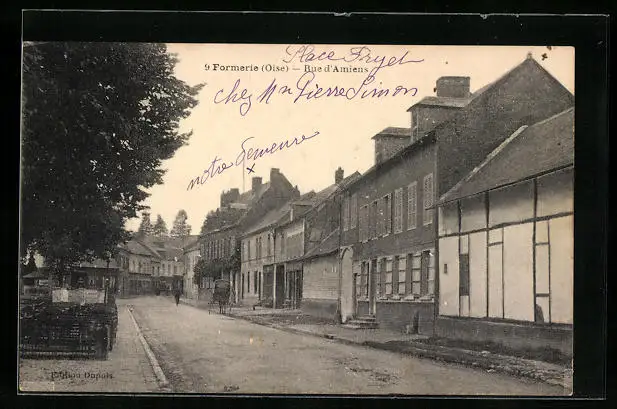 9 Formerie (Oise) — Rue d'Amiens
Place Fryet
chez Mr Pierre Simon
notre demeure
x
Edition Dupuis